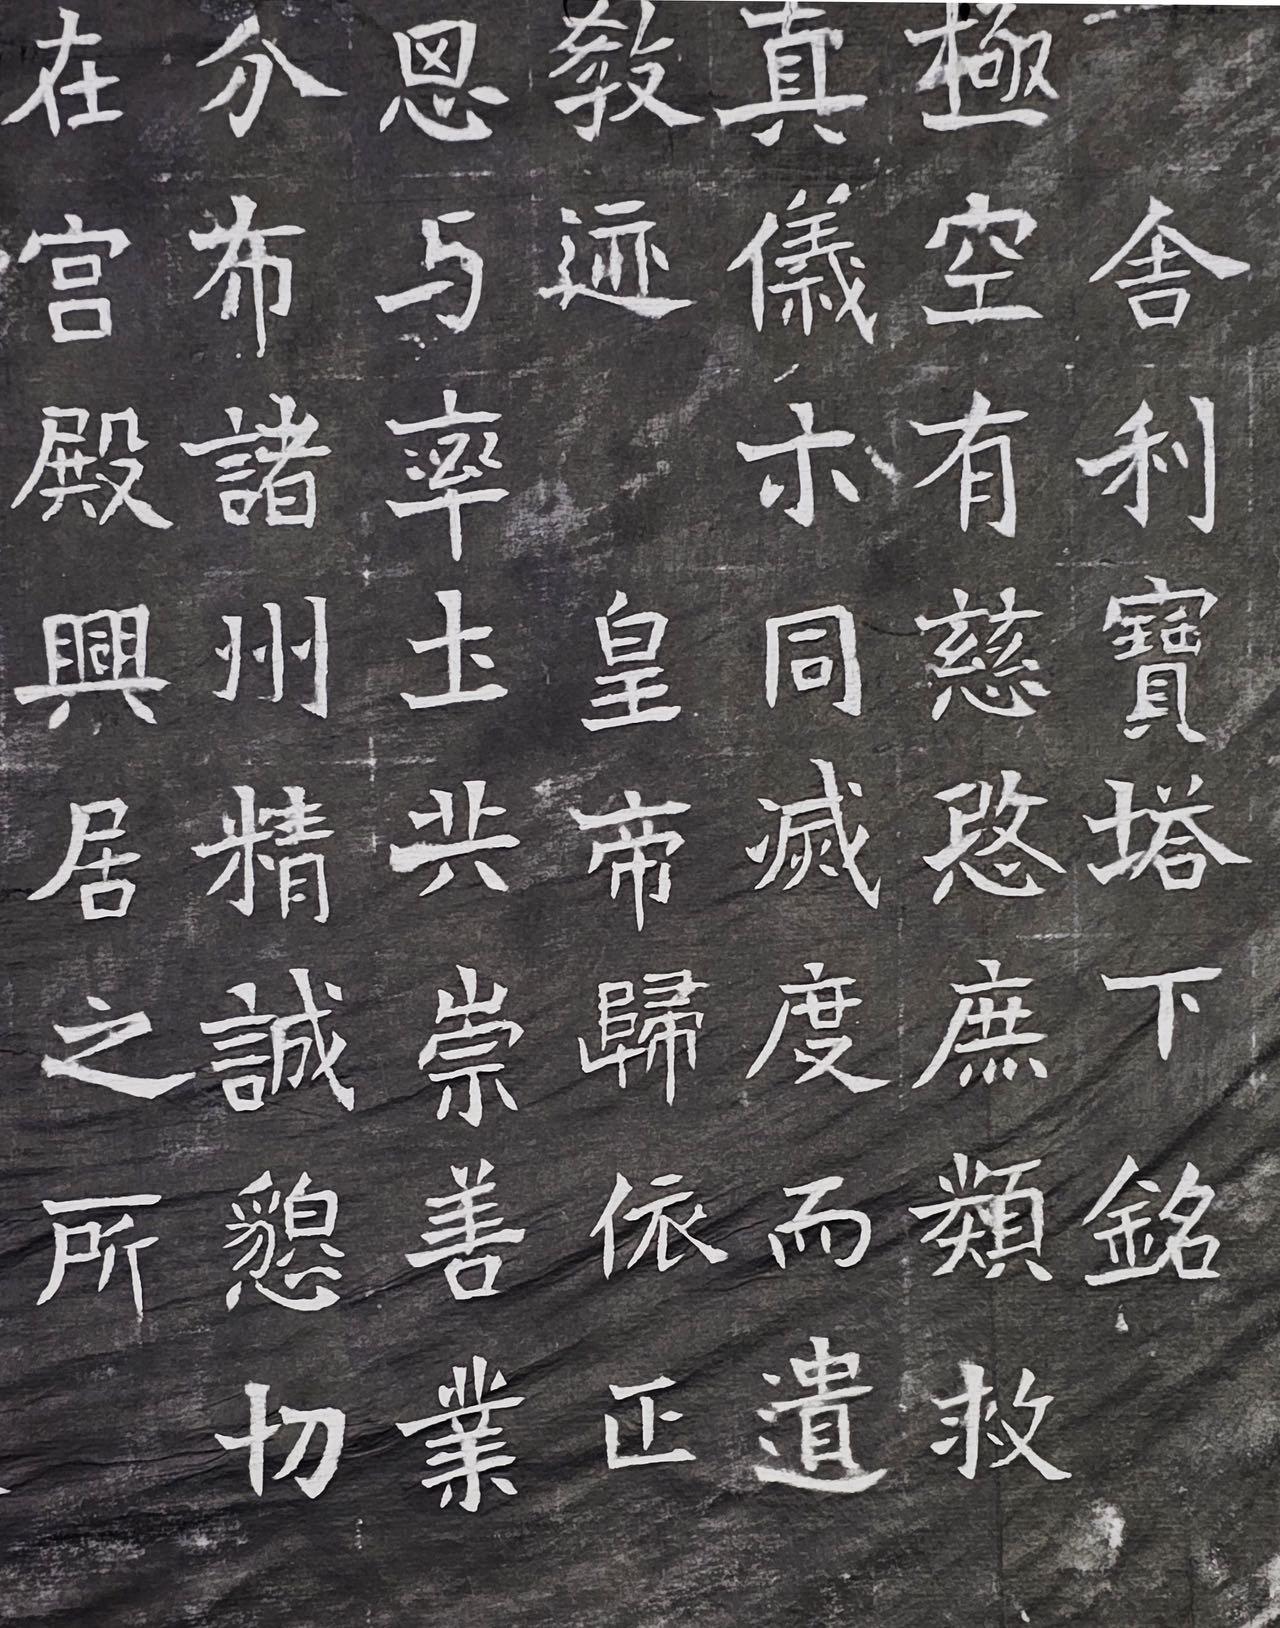 舍利寶塔下銘
極空有慈愍庶類救
真儀示同滅度而遺
教迹皇帝歸依正
恩与率土共崇善業
分布諸州精誠懇切
在宮殿興居之所